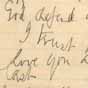 God defend
I trust
love you
last